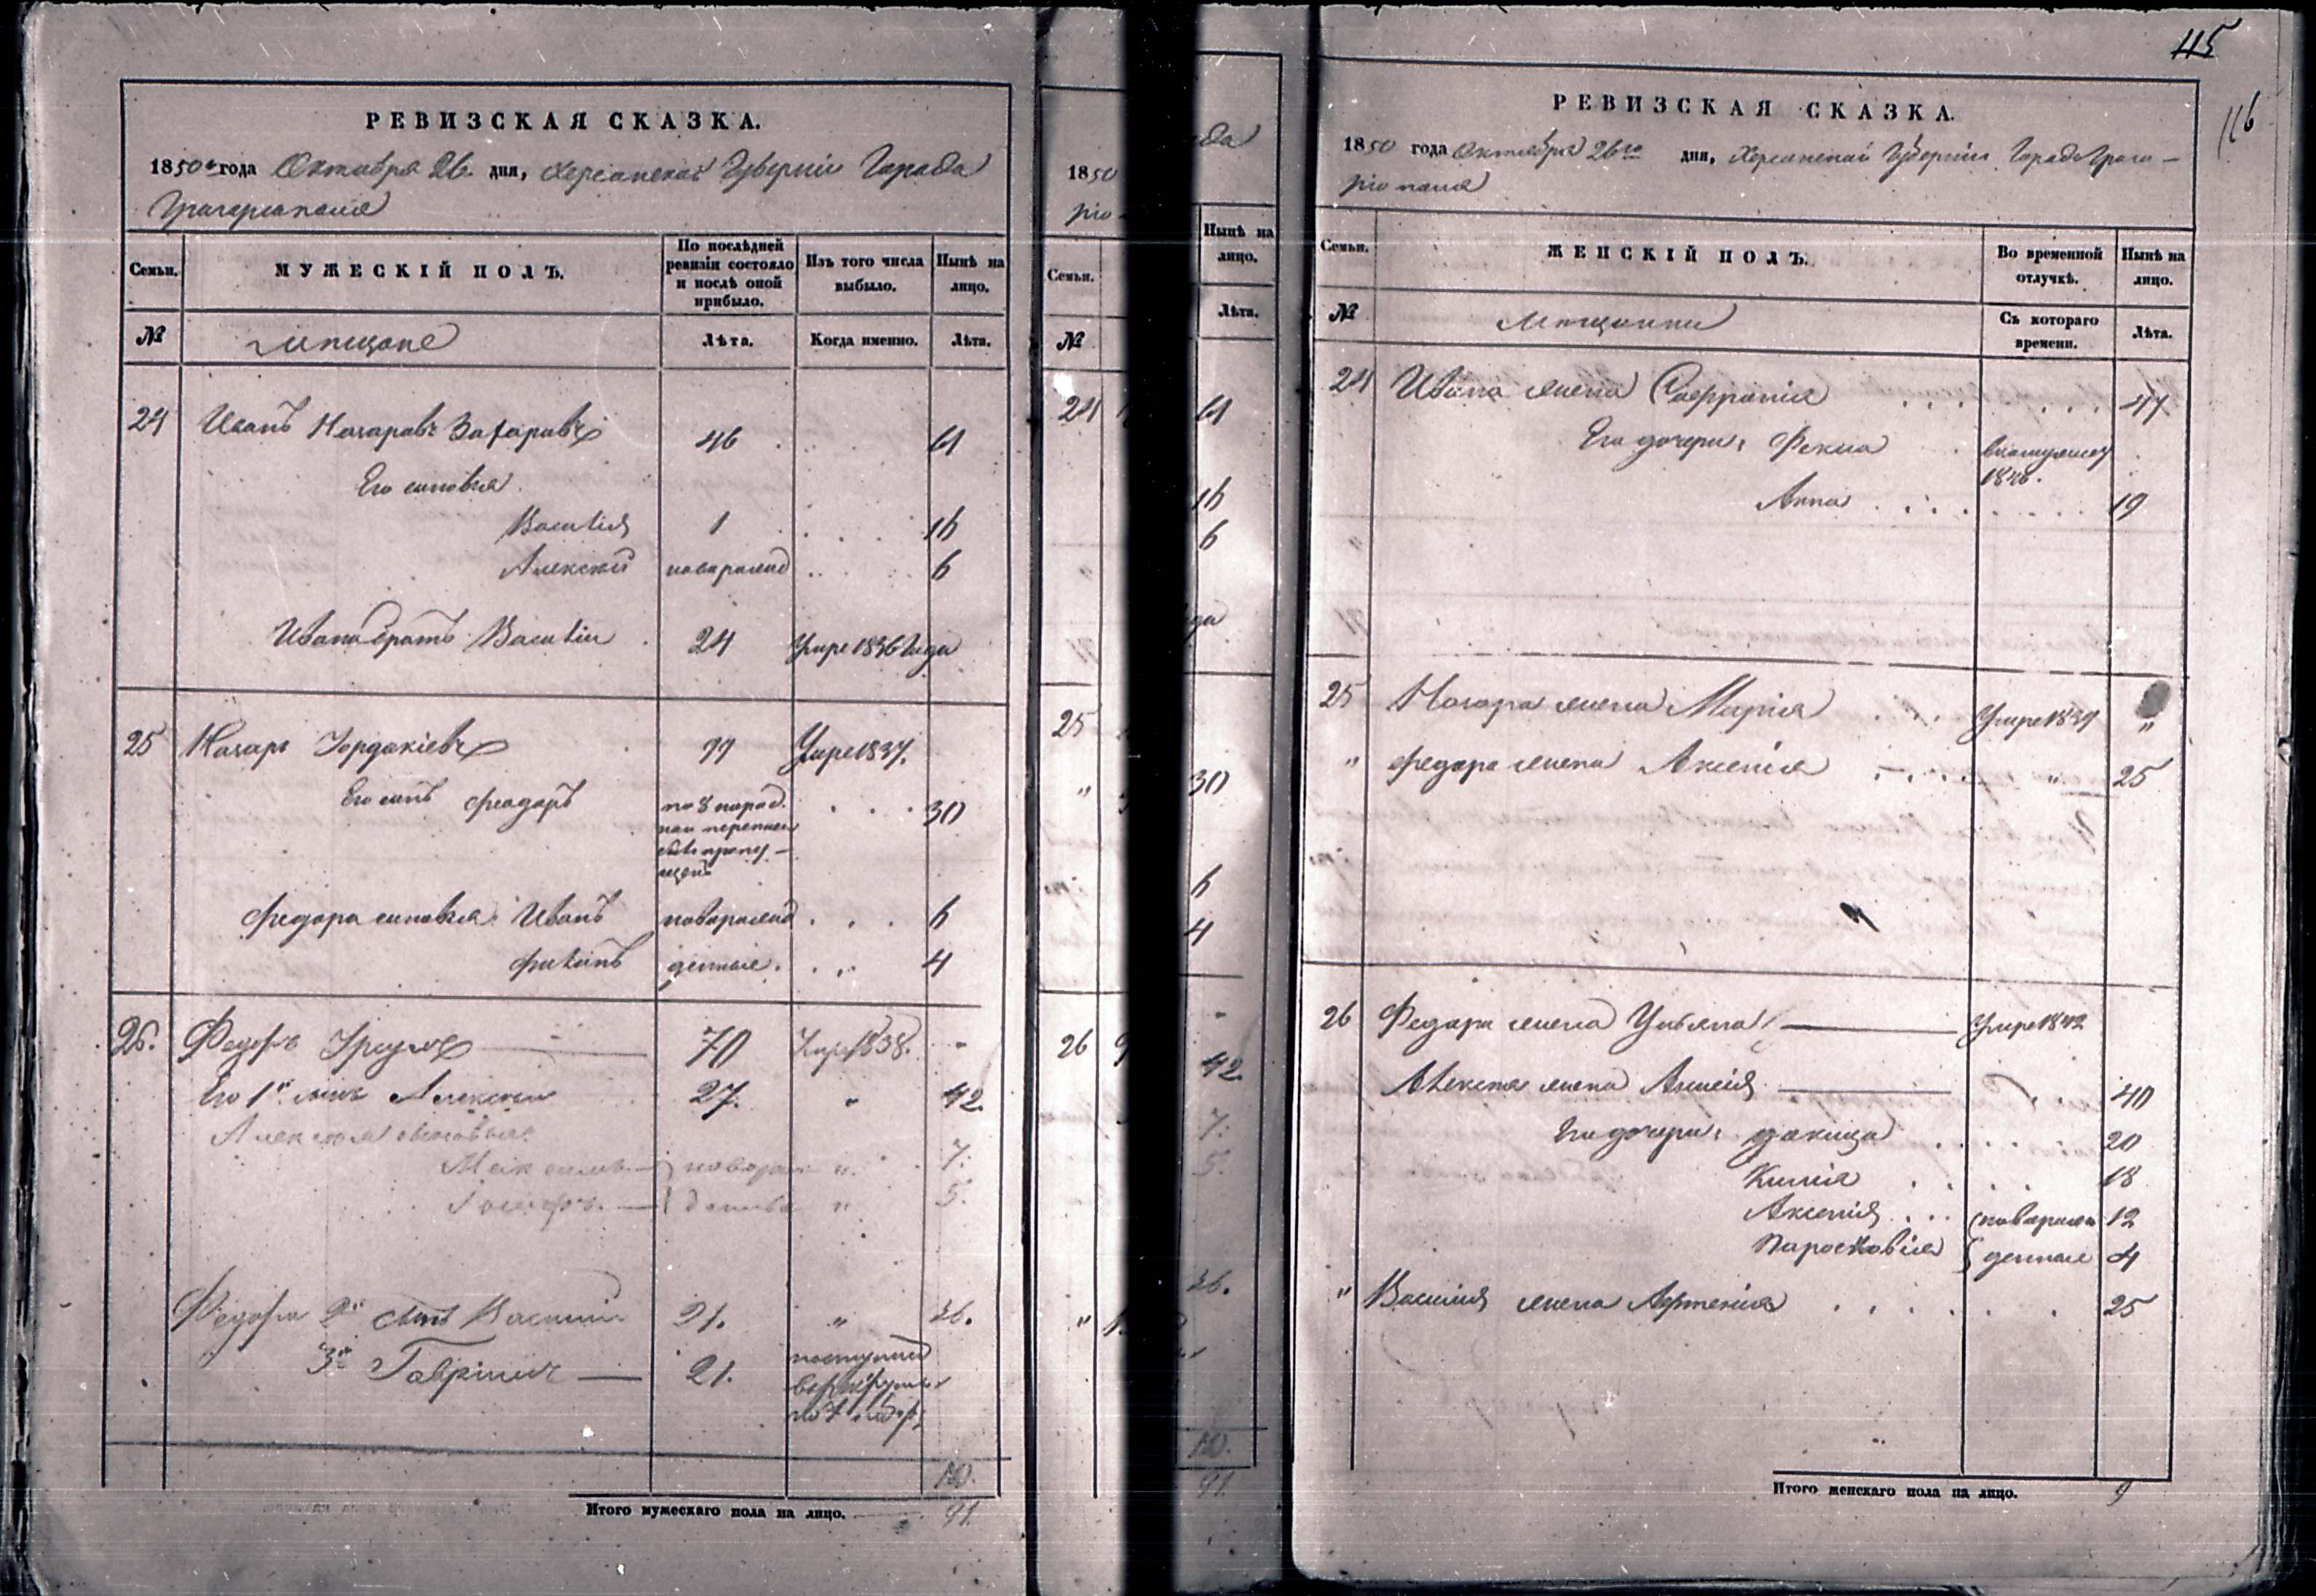 РЕВИЗСКАЯ СКАЗКА.
1850 года Октября 26. дня, Херсонской Губерніи Города
Григоріополя
Семьи.
МУЖЕСКІЙ ПОЛЪ.
По послѣдней ревизіи состояло и послѣ оной прибыло.
Изъ того числа выбыло.
Нынѣ на лицо.
№
Мѣщане
Лѣта.
Когда именно.
Лѣта.
24 Иванъ Назаровъ Захаровъ 46 61
Его сыновья
Василій 1 16
Алексѣй новорожд 6
Ивана братъ Василій 24 Умре 1836 года
25 Назаръ Іордакіевъ 77 Умре 1837.
Его сынъ Феодоръ по 8 народ. 30
Федора сыновья: Иванъ новорожд 6
Филипъ денные. 4
26. Федоръ 70 Умре 1838.
Его 1й сынъ Алексѣй 27. " 42.
Алексѣя сыновья:
новорож " 7.
" 5.
Федора 2й сынъ Василій 21. " 36.
3й Гавріилъ 21. поступилъ
10.
Итого мужескаго пола на лицо. 91.
1850
ріо-
Семьи.
№
24
25
"
26
"
да
Нынѣ на лицо.
Лѣта.
61
16
6
30
6
4
42.
7.
5.
36.
10.
91.
115
116
РЕВИЗСКАЯ СКАЗКА.
1850 года Октября 26го дня, Херсонской Губерніи Города Григо-
ріополя
Семьи.
ЖЕНСКІЙ ПОЛЪ.
Во временной отлучкѣ.
Нынѣ на лицо.
№
Мѣщанки
Съ котораго времени.
Лѣта.
24 Ивана жена Софронія 47
Его дочери: Фекла в замужест
1846.
Анна 19
25 Назара жена Марія Умре 1839 "
" Федора жена Аксенія " 25
26 Федора жена Ульяна Умре 1842
Алексѣя жена 40
Его дочери: 20
18
Аксенія новорожд 12
Парасковія денные 4
" Василія жена 25
Итого женскаго пола на лицо. 9